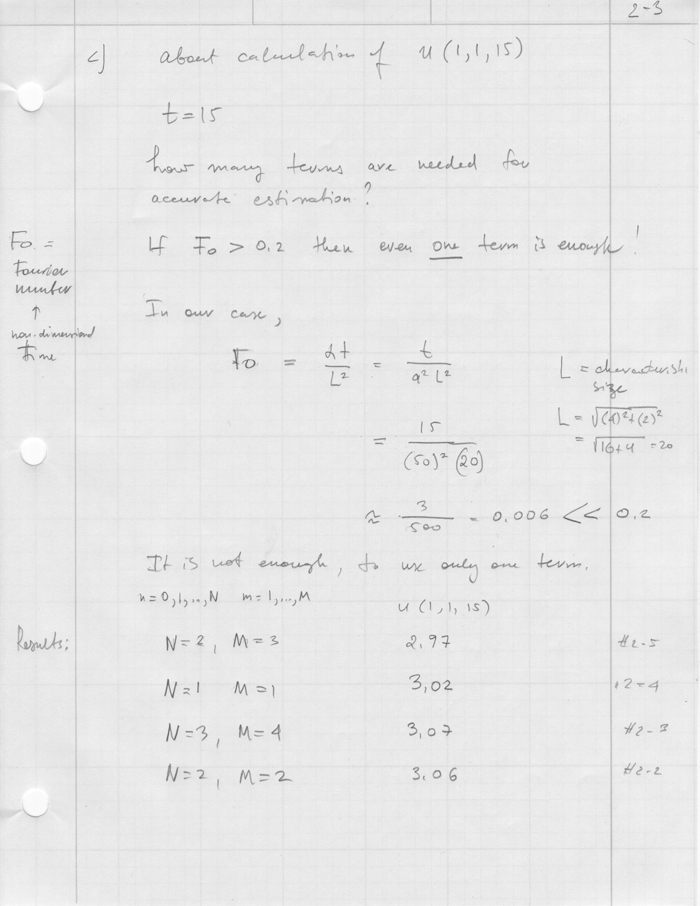 2-3
c) about calculation of u(1,1,15)
t=15
how many terms are needed for
accurate estimation?
Fo = Fourier number ↑ non-dimensional time
If Fo > 0,2 then even one term is enough!
In our case,
Fo = αt/L² = t/a²L²
L = characteristic size
L = √(4)²+(2)²
= √16+4 = 20
= 15/(50)² (20)
≈ 3/500 = 0,006 << 0.2
It is not enough, to use only one term.
n=0,1,..,N m=1,...,M u(1,1,15)
Results: N=2, M=3 2,97 #2-5
N=1 M=1 3,02 2-4
N=3, M=4 3,07 #2-3
N=2, M=2 3,06 #2-2